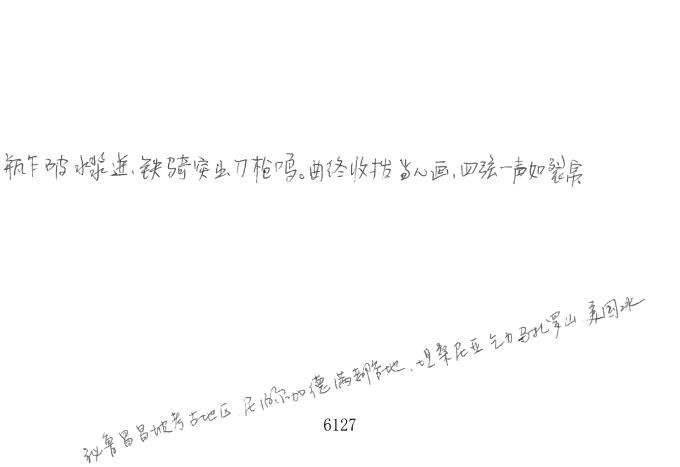 瓶乍破水浆迸,铁骑突出刀枪鸣。曲终收拨当心画,四弦一声如裂帛
秘鲁昌昌城考古地区、尼泊尔加德满都谷地、坦桑尼亚乞力马扎罗山、美国冰
6127